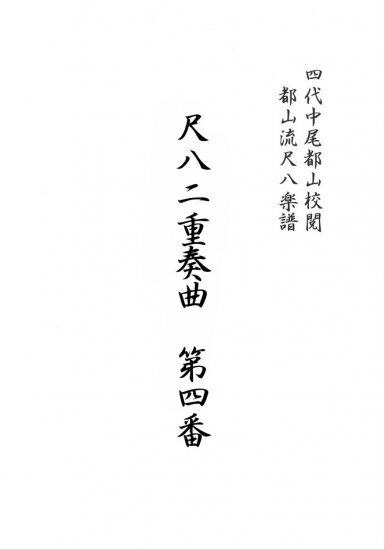 四代中尾都山校閲
都山流尺八楽譜
尺八二重奏曲　第四番